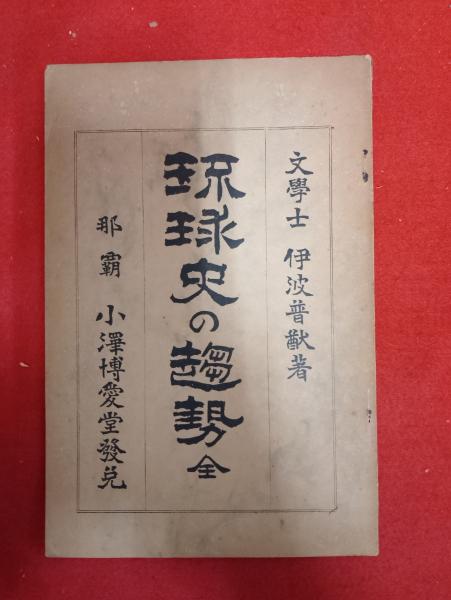 文學士 伊波普猷著
琉球史の趨勢 全
那覇 小澤博愛堂發兌